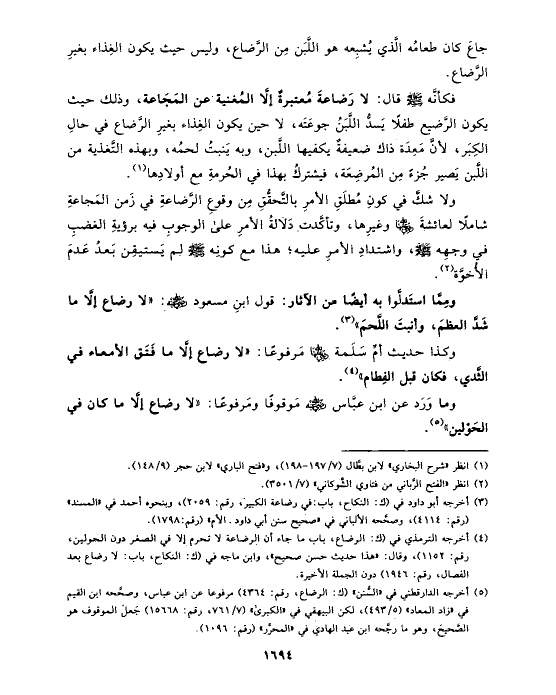 جاعَ كان طعامُه الَّذي يُشبِعه هو اللَّبَن مِن الرَّضاع، وليس حيث يكون الغِذاء بغيرِ
الرَّضاع.
فكأنَّه ﷺ قال: لا رَضاعةَ مُعتبرةٌ إلَّا المُغنية عن المَجَاعة، وذلك حيث
يكون الرَّضيع طفلًا يَسدُّ اللَّبَنُ جوعَتَه، لا حين يكون الغِذاء بغيرِ الرَّضاع في حالِ
الكِبَر، لأنَّ مَعِدَة ذاك ضعيفةٌ يكفيها اللَّبن، وبه يَنبتُ لحمُه، وبهذه التَّغذية من
اللَّبن يَصير جُزءً مِن المُرضِعَة، فيشتركُ بهذا في الحُرمةِ مع أولادِها(١).
ولا شكَّ في كونِ مُطلَقِ الأمرِ بالتَّحقُّقِ مِن وقوعِ الرَّضاعةِ في زَمن المَجاعةِ
شاملًا لعائشةَ ﵂ وغيرِها، وتأكَّدت دَلالةُ الأمرِ علىٰ الوجوبِ فيه برؤيةِ الغضبِ
في وجهِه ﷺ، واشتدادِ الأمرِ عليه؛ هذا مع كونِه ﷺ لم يَستيقِن بَعدُ عَدمَ
الأُخوَّة(٢).
ومِمَّا استَدلُّوا به أيضًا عن الآثار: قول ابنِ مسعود ﵁: «لا رضاع إلَّا ما
شَدَّ العظمَ، وأنبتَ اللَّحمَ»(٣).
وكذا حديث أمِّ سَلَمة ﵂ مَرفوعًا: «لا رضاع إلَّا ما فَتَق الأمعاء في
الثَّدي، فكان قبل الفِطام»(٤).
وما وَرَد عن ابن عبَّاس ﵁ مَوقوفًا ومَرفوعًا: «لا رضاع إلَّا ما كان في
الحَوْلين»(٥).
(١) انظر «شرح البخاري» لابن بطَّال (١٩٧/٧-١٩٨)، و«فتح الباري» لابن حجر (١٤٨/٩).
(٢) انظر «الفتح الرَّباني من فتاوي الشَّوكاني» (٣٥٠١/٧).
(٣) أخرجه أبو داود في (ك: النكاح، باب: في رضاعة الكبير، رقم: ٢٠٥٩)، وبنحوه أحمد في «المسند»
(رقم: ٤١١٤)، وصحَّحه الألباني في «صحيح سنن أبي داود ـ الأم» (رقم: ١٧٩٨).
(٤) أخرجه الترمذي في (ك: الرضاع، باب ما جاء أن الرضاعة لا تحرم إلا في الصغر دون الحولين،
رقم: ١١٥٢)، وقال: «هذا حديث حسن صحيح»، وابن ماجه في (ك: النكاح، باب: لا رضاع بعد
الفصال، رقم: ١٩٤٦) دون الجملة الأخيرة.
(٥) أخرجه الدارقطني في «السُّنن» (ك: الرضاع، رقم: ٤٣٦٤) مرفوعا عن ابن عباس، وصحَّحه ابن القيم
في «زاد المعاد» (٤٩٣/٥)، لكن البيهقي في «الكبرىٰ» (٧٦١/٧، رقم: ١٥٦٦٨) جَعلَ الموقوف هو
الصَّحيحَ، وهو ما رجَّحه ابن عبد الهادي في «المحرَّر» (رقم: ١٠٩٦).
١٦٩٤